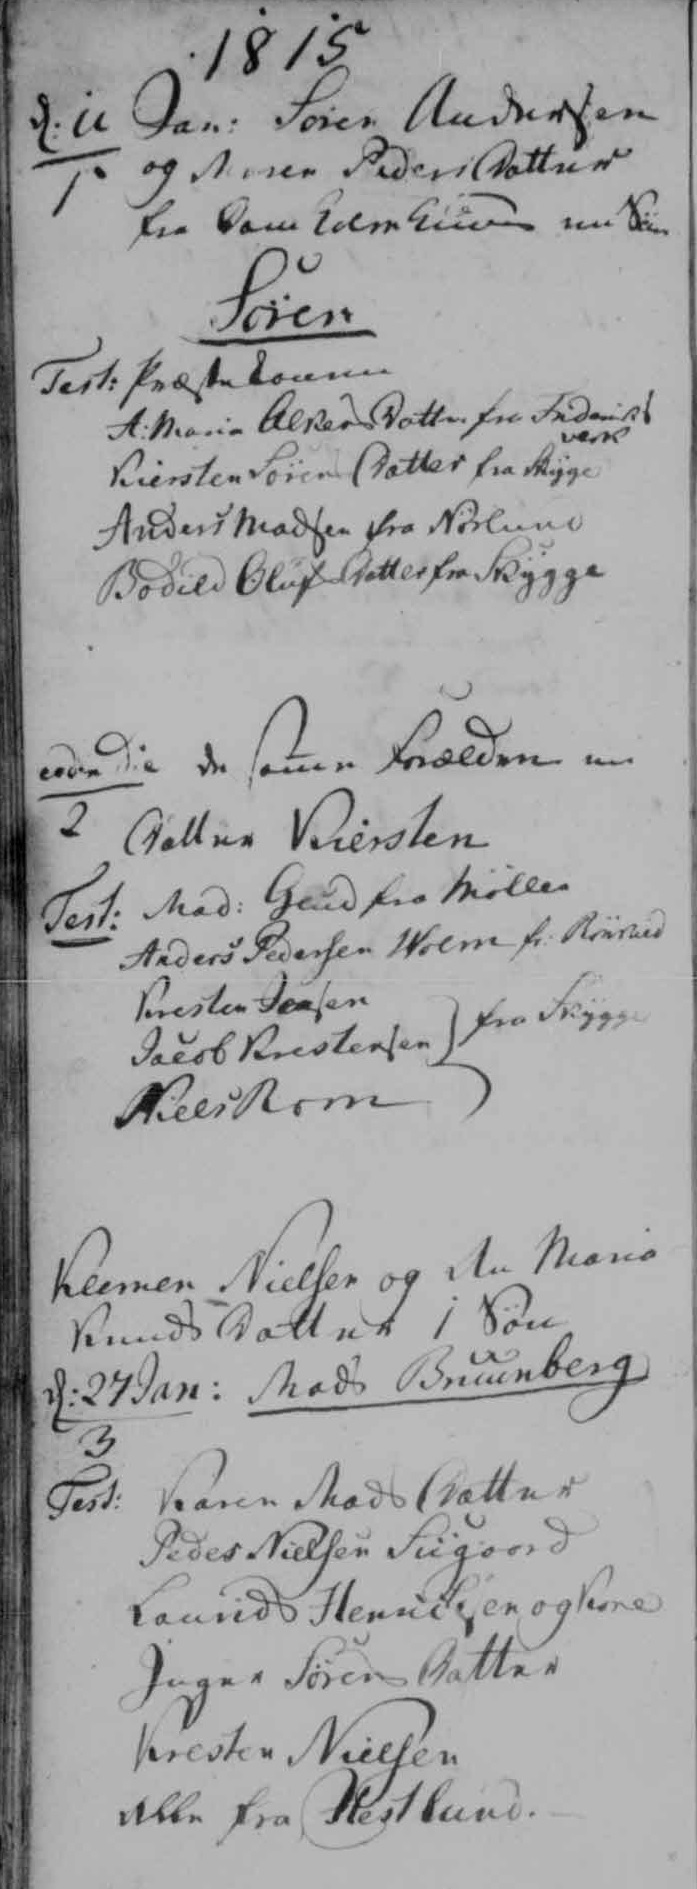 1815
d: 11 Jan: Sören Andersen
1 og Maren Peders Datter
fra en Sön
Sören
Test: Præstekonen
A: Maria Datter fra Frederiks
værk
Kiersten Sörens Datter fra Skÿge
Anders Madsen fra Nörlund
Bodild Oluf Datter fra Skÿgge
eodem die de samme Forældre en
2 Datter Kiersten
Test: Mad: fra Möllen
Anders Pedersen fr:
Kresten Jensen
Jacob Kristensen } fra Skÿgge
Niels Rom
Klemen Nielsen og An Maria
Knuds Datter 1 Sön
d: 27 Jan: Mads Bruunberg
3
Test: Karen Mads Datter
Peder Nielsen
Laurids Henrichsen og Kone
Inger Sörens Datter
Kresten Nielsen
alle fra Hestlund.